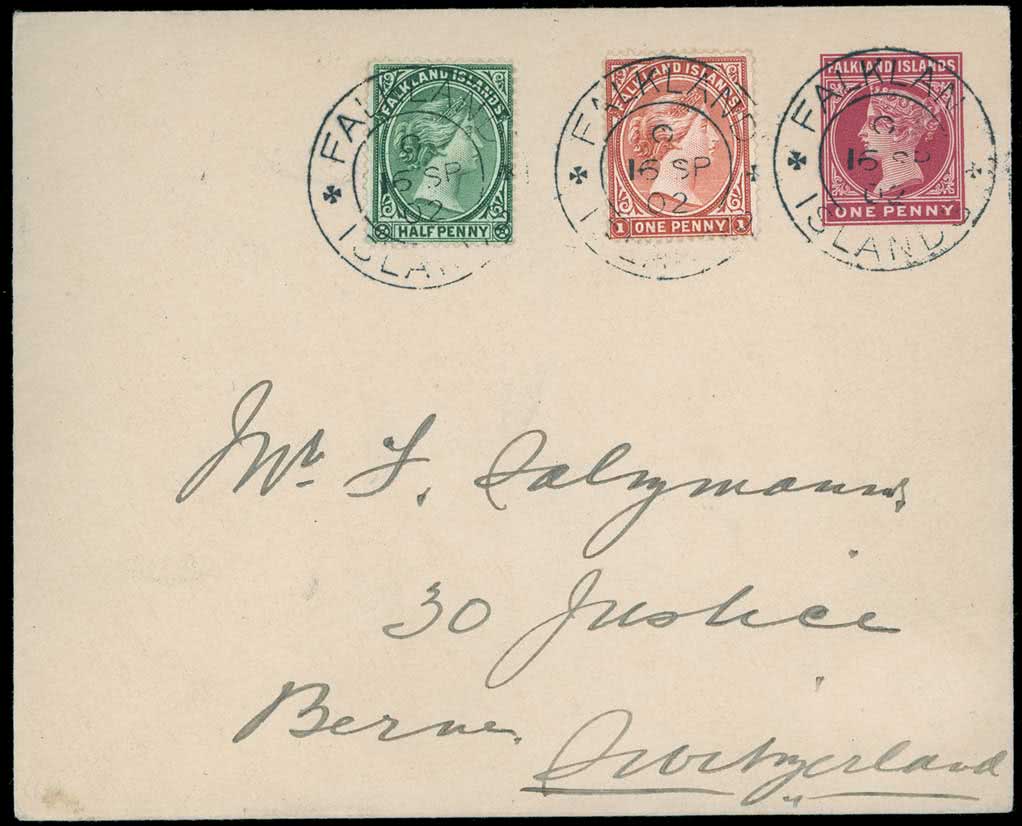 FALKLAND ISLANDS
HALFPENNY
FALKLAND ISLANDS
1 ONE PENNY 1
FALKLAND ISLANDS
ONE PENNY
FALKLAND
C
16 SP
02
ISLANDS
FALKLAND
C
16 SP
02
ISLANDS
FALKLAND
C
16 SP
02
ISLANDS
Mr. F. Salzmann.
30 Justice
Berne.
Switzerland